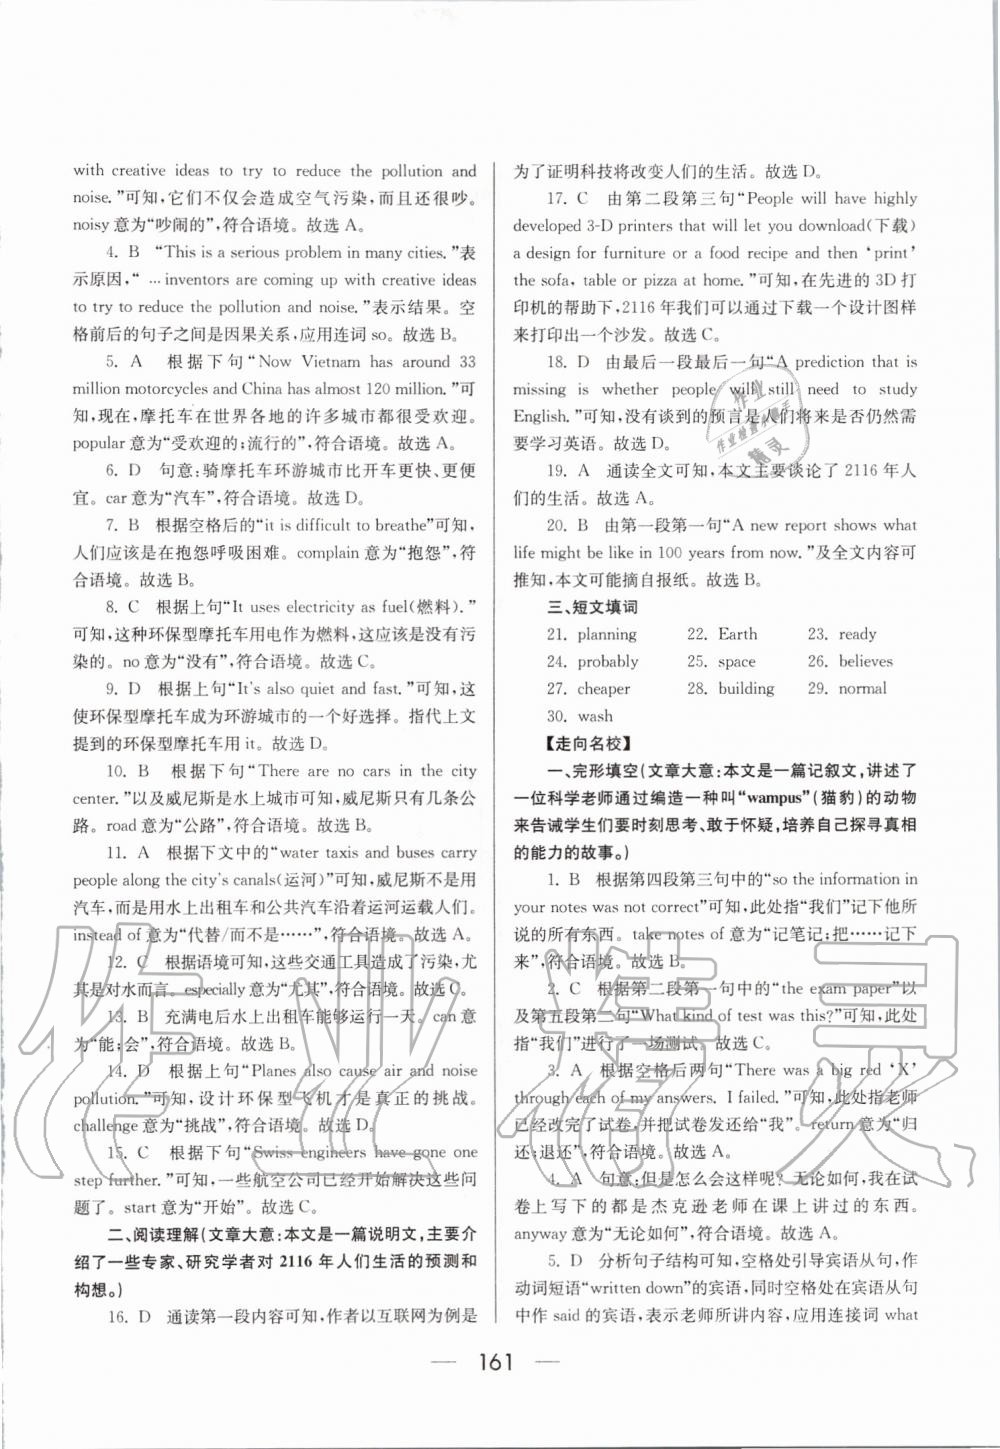 with creative ideas to try to reduce the pollution and
noise. ”可知,它们不仅会造成空气污染,而且还很吵。
noisy 意为“吵闹的”,符合语境。故选 A。
4. B “This is a serious problem in many cities. ”表
示原因,“ … inventors are coming up with creative ideas
to try to reduce the pollution and noise. ”表示结果。空
格前后的句子之间是因果关系,应用连词 so。故选 B。
5. A 根据下句“Now Vietnam has around 33
million motorcycles and China has almost 120 million. ”可
知,现在,摩托车在世界各地的许多城市都很受欢迎。
popular 意为“受欢迎的;流行的”,符合语境。故选 A。
6. D 句意:骑摩托车环游城市比开车更快、更便
宜。car 意为“汽车”,符合语境。故选 D。
7. B 根据空格后的“it is difficult to breathe”可知,
人们应该是在抱怨呼吸困难。complain 意为“抱怨”,符
合语境。故选 B。
8. C 根据上句“It uses electricity as fuel(燃料). ”
可知,这种环保型摩托车用电作为燃料,这应该是没有污
染的。no 意为“没有”,符合语境。故选 C。
9. D 根据上句“It's also quiet and fast. ”可知,这
使环保型摩托车成为环游城市的一个好选择。指代上文
提到的环保型摩托车用 it。故选 D。
10. B 根据下句“There are no cars in the city
center. ”以及威尼斯是水上城市可知,威尼斯只有几条公
路。road 意为“公路”,符合语境。故选 B。
11. A 根据下文中的“water taxis and buses carry
people along the city's canals(运河)”可知,威尼斯人不是用
汽车,而是用水上出租车和公共汽车沿着运河运载人们。
instead of 意为“代替/而不是……”,符合语境。故选 A。
12. C 根据语境可知,这些交通工具造成了污染,尤
其是对水而言。especially 意为“尤其”,符合语境。故选 C。
13. B 充满电后水上出租车能够运行一天。can 意
为“能;会”,符合语境。故选 B。
14. D 根据上句“Planes also cause air and noise
pollution. ”可知,设计环保型飞机才是真正的挑战。
challenge 意为“挑战”,符合语境。故选 D。
15. C 根据下句“Swiss engineers have gone one
step further. ”可知,一些航空公司已经开始解决这些问
题了。start 意为“开始”。故选 C。
二、阅读理解(文章大意:本文是一篇说明文,主要介
绍了一些专家、研究学者对 2116 年人们生活的预测和
构想。)
16. D 通读第一段内容可知,作者以互联网为例是
为了证明科技将改变人们的生活。故选 D。
17. C 由第二段第三句“People will have highly
developed 3-D printers that will let you download(下载)
a design for furniture or a food recipe and then ‘print’
the sofa, table or pizza at home. ”可知,在先进的 3D 打
印机的帮助下,2116 年我们可以通过下载一个设计图样
来打印出一个沙发。故选 C。
18. D 由最后一段最后一句“A prediction that is
missing is whether people will still need to study
English. ”可知,没有谈到的预言是人们将来是否仍然需
要学习英语。故选 D。
19. A 通读全文可知,本文主要谈论了 2116 年人
们的生活。故选 A。
20. B 由第一段第一句“A new report shows what
life might be like in 100 years from now. ”及全文内容可
推知,本文可能摘自报纸。故选 B。
三、短文填词
21. planning 22. Earth 23. ready
24. probably 25. space 26. believes
27. cheaper 28. building 29. normal
30. wash
【走向名校】
一、完形填空(文章大意:本文是一篇记叙文,讲述了
一位科学老师通过编造一种叫“wampus”(猫豹)的动物
来告诫学生们要时刻思考、敢于怀疑,培养自己探寻真相
的能力的故事。)
1. B 根据第四段第三句中的“so the information in
your notes was not correct”可知,此处指“我们”记下他所
说的所有东西。take notes of 意为“记笔记;把……记下
来”,符合语境。故选 B。
2. C 根据第二段第一句中的“the exam paper”以
及第五段第二句“What kind of test was this?”可知,此处
指“我们”进行了一场测试。故选 C。
3. A 根据空格后两句“There was a big red ‘X’
through each of my answers. I failed. ”可知,此处指老师
已经改完了试卷,并把试卷发还给“我”。return 意为“归
还;退还”,符合语境。故选 A。
4. A 句意:但是怎么会这样呢? 无论如何,我在试
卷上写下的都是杰克逊老师在课上讲过的东西。
anyway 意为“无论如何”,符合语境。故选 A。
5. D 分析句子结构可知,空格处引导宾语从句,作
动词短语“written down”的宾语,同时空格处在宾语从句
中作 said 的宾语,表示老师所讲内容,应用连接词 what
— 161 —
作业精灵